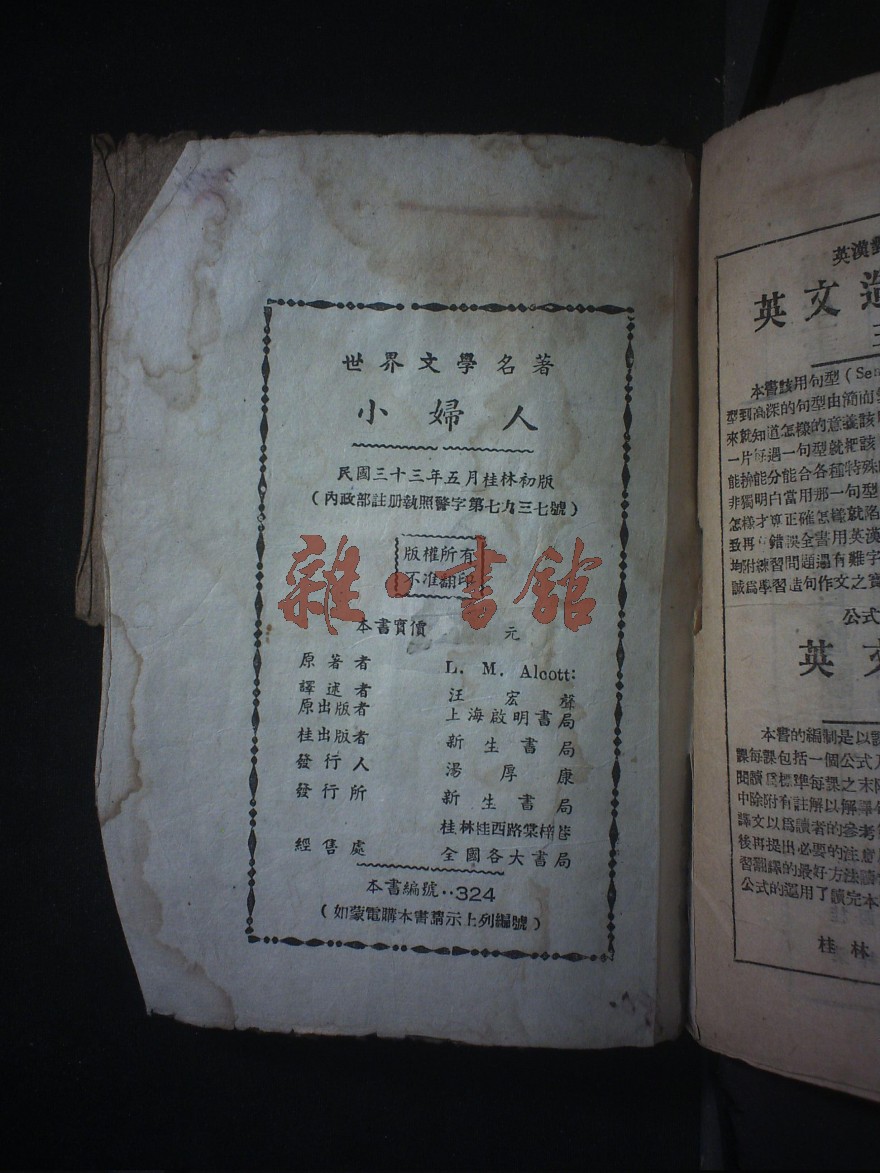 世界文學名著
小婦人
民國三十三年五月桂林初版
（內政部註册執照警字第七九三七號）
版權所有
不准翻印
雜·書館
本書實價 元
原著者 L. M. Alcott:
譯述者 汪宏聲
原出版者 上海啟明書局
桂出版者 新生書局
發行人 湯厚康
發行所 新生書局
桂林桂西路棠梓巷
經售處 全國各大書局
本書編號··324
（如蒙電購本書請示上列編號）
英漢
英文造
本書該用句型（Sen
型到高深的句型由簡而
來就知道怎樣的意義該
一片 過一句型就把該
能 能分能合各種特殊
非獨明白當用那一句型
怎樣才算正確怎樣就陷
致再 錯誤全書用英漢
均附練習問題還有難字
誠爲學習造句作文之寶
公式
英文
本書的編制是以課
課每課包括一個公式
閱讀爲標準每課之末附
中除附有註解以解釋
譯文以爲讀者的參考
後再提出必要的注意
習翻譯的最好方法讀
公式的運用了讀完本
桂林